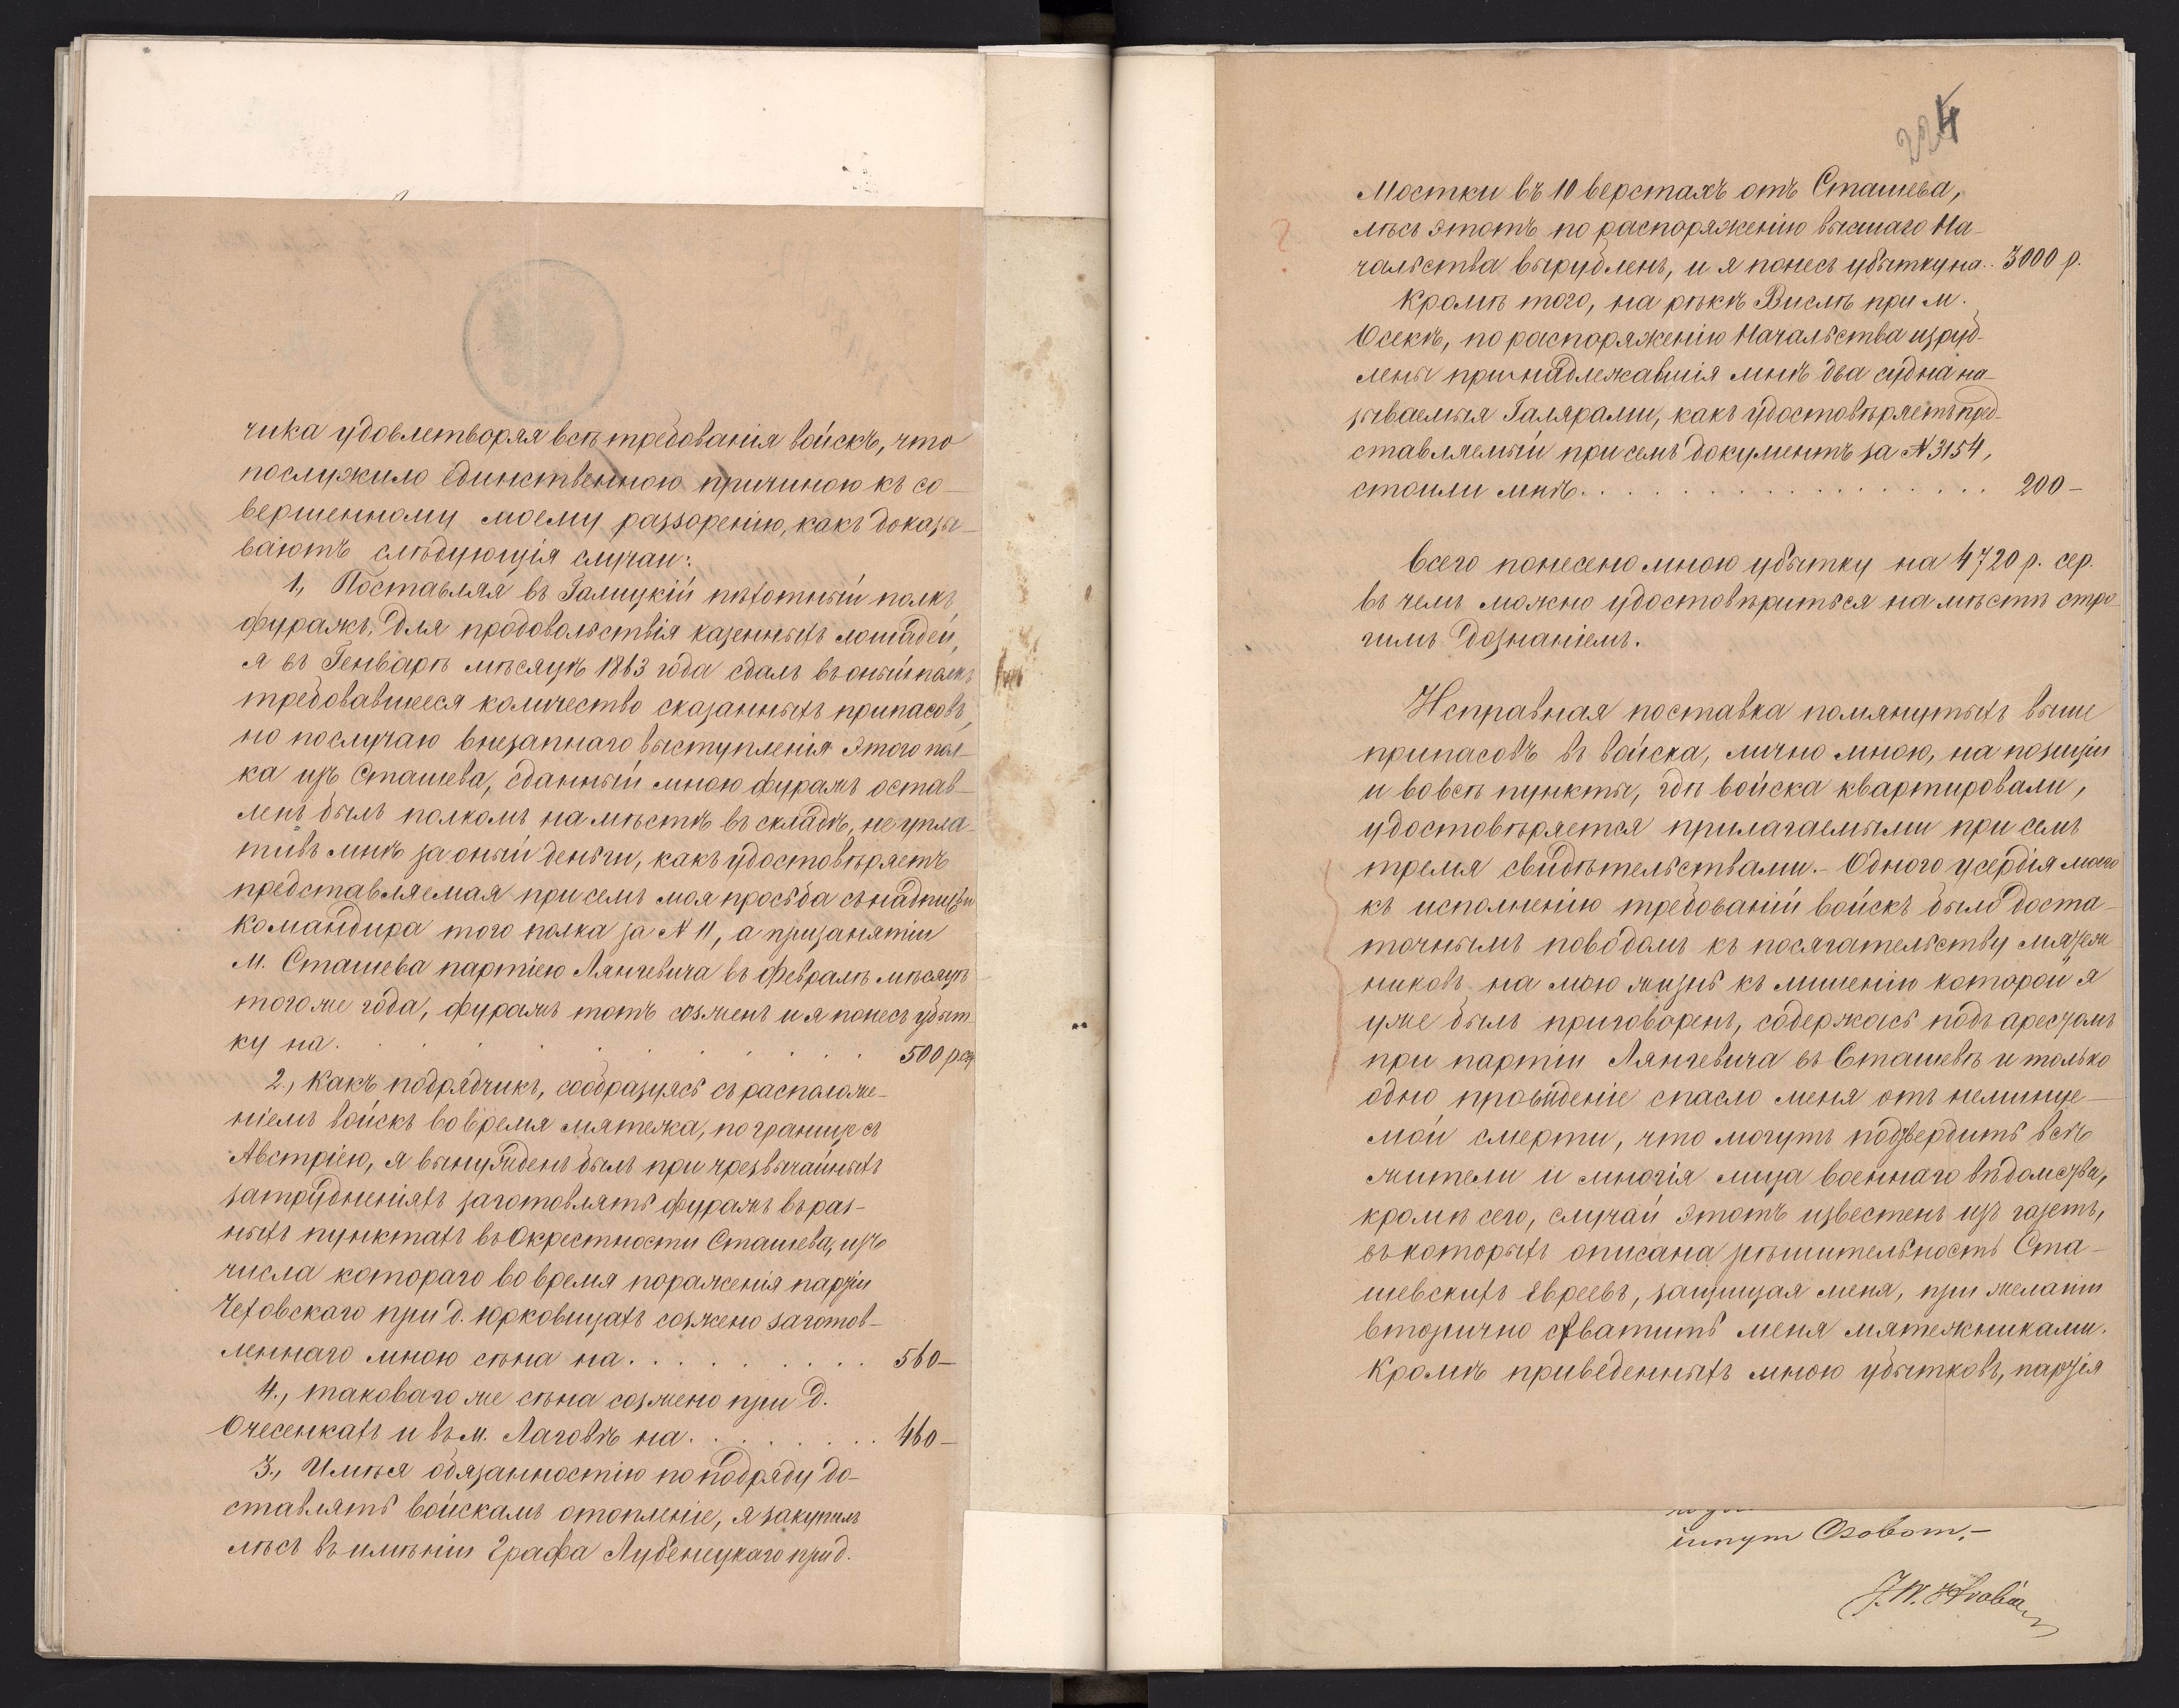 чика удовлетворяя всѣ требованія войскъ, что
послужило единственною причиною къ со-
вершенному моему раззоренію, какъ доказы-
ваютъ слѣдующія случаи:
1., Поставляя въ Галицкій пѣхотный полкъ
фуражъ, для продовольствія казенныхъ лошадей,
я въ Генварѣ мѣсяцѣ 1863 года сдалъ въ оный полкъ
требовавшееся количество сказанныхъ припасовъ,
но послучаю внезапнаго выступленія этого пол-
ка изъ Сташева, сданный мною фуражъ остав-
ленъ былъ полкомъ на мѣстѣ въ складѣ, не упла-
тивъ мнѣ за оный деньги, какъ удостовѣряетъ
представляемая при семъ моя просьба съ надписью
командира того полка за № 11, а при занятіи
м. Сташева партіею Лянгевича въ Февралѣ мѣсяцѣ
того же года, фуражъ тотъ созженъ и я понесъ убыт-
ку на . . . . . . . . . . . 500 р. сер.
2., Какъ подрядчикъ, сообразуясь съ расположе-
ніемъ войскъ во время мятежа, по границе съ
Австріею, я вынужденъ былъ при чрезвычайныхъ
затрудненіяхъ заготовлять фуражъ въ раз-
ныхъ пунктахъ въ Окрестности Сташева, изъ
числа котораго во время пораженія партіи
Чеховскаго при д. Юрковицахъ созжено заготов-
леннаго мною сѣна на . . . . . . . . 560 —
4., таковаго же сѣна созжено при д.
Очесенкахъ и въ м. Лаговѣ на . . . . . . 460 —
3., Имѣя обязанностію по подряду до-
ставлять войскамъ отопленіе, я закупилъ
лѣсъ въ имѣніи Графа Лубенецкаго при д.
224
Мостки въ 10 верстахъ отъ Сташева,
лѣсъ этотъ по распоряженію высшаго На-
чальства вырубленъ, и я понесъ убытку на .. 3000 р.
Кромѣ того, на рѣкѣ Вислѣ при м.
Осекѣ, по распоряженію Начальства изруб-
лены принадлежавшія мнѣ два судна на-
зываемыя Галярами, какъ удостовѣряетъ пред-
ставляемый при семъ документъ за № 3154,
стоили мнѣ . . . . . . . . . . . . . . 200 —
Всего понесено мною убытку на 4720 р. сер.
въ чемъ можно удостовѣриться на мѣстѣ стро-
гимъ дознаніемъ.
Исправная поставка помянутыхъ выше
припасовъ въ войска, лично мною, на позиціи
и во всѣ пункты, гдѣ войска квартировали,
удостовѣряется прилагаемыми при семъ
тремя свидѣтельствами. - Одного усердія моего
къ исполненію требованій войскъ было доста-
точнымъ поводомъ къ посягательству мятеж-
никовъ на мою жизнь къ лишенію которой я
уже былъ приговоренъ, содержась подъ арестомъ
при партіи Лянгевича въ Сташевѣ и только
одно провиденіе спасло меня отъ немину-
мой смерти, что могутъ подтвердить всѣ
жители и многія лица военнаго вѣдомства,
кромѣ сего, случай этотъ известенъ изъ газетъ,
въ которыхъ описана рѣшительность Ста-
шевскихъ евреевъ, защищая меня, при желаніи
вторично схватить меня мятежниками.
Кромѣ приведенныхъ мною убытковъ, партія
innym Osobom. —